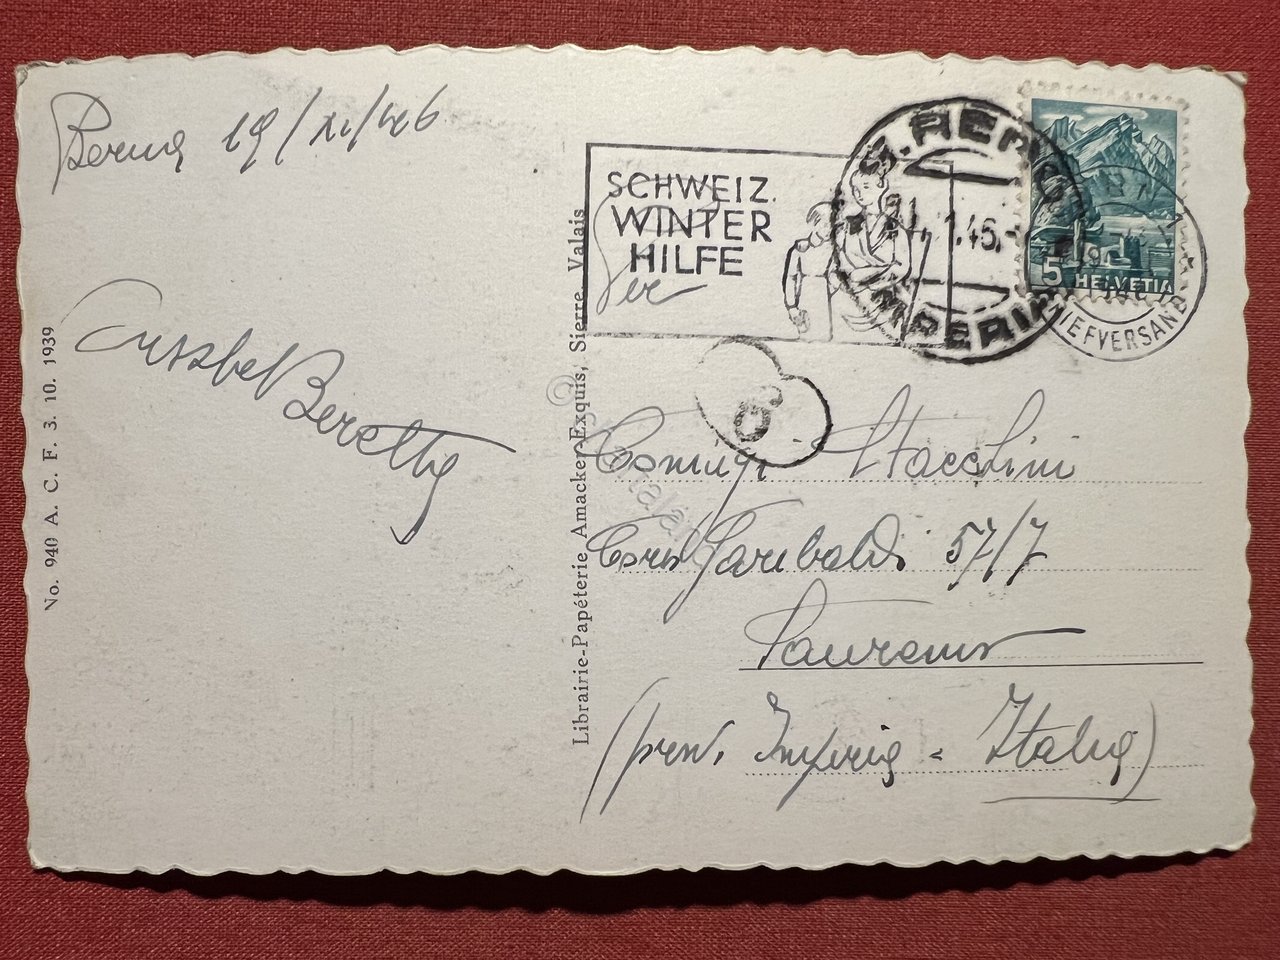 Berna 19/XI/46
Beretta
No. 940 A. C. F. 3. 10. 1939
Librairie-Papéterie Amacker-Exquis, Sierre, Valais
SCHWEIZ.
WINTER
HILFE
S. REMO
IMPERIA
5 HELVETIA
BRIEFVERSAND
6
Stacchini
Corso Garibaldi 57/7
Sanremo
(prov. Imperia - Italia)